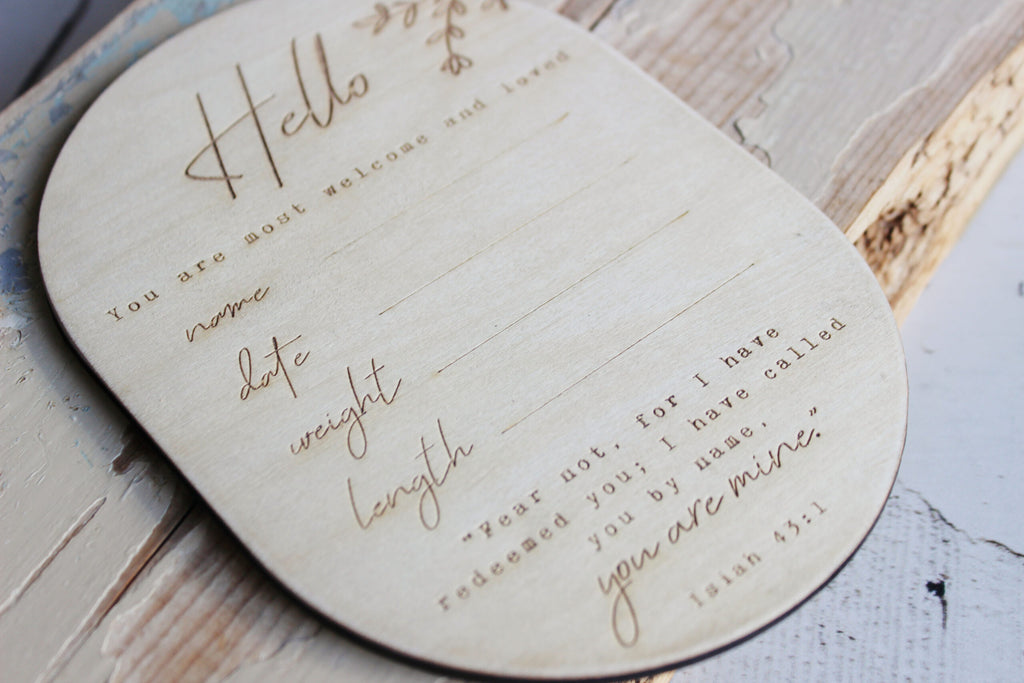 Hello
You are most welcome and loved
name
date
weight
length
"Fear not, for I have
redeemed you; I have called
you by name,
you are mine."
Isiah 43:1